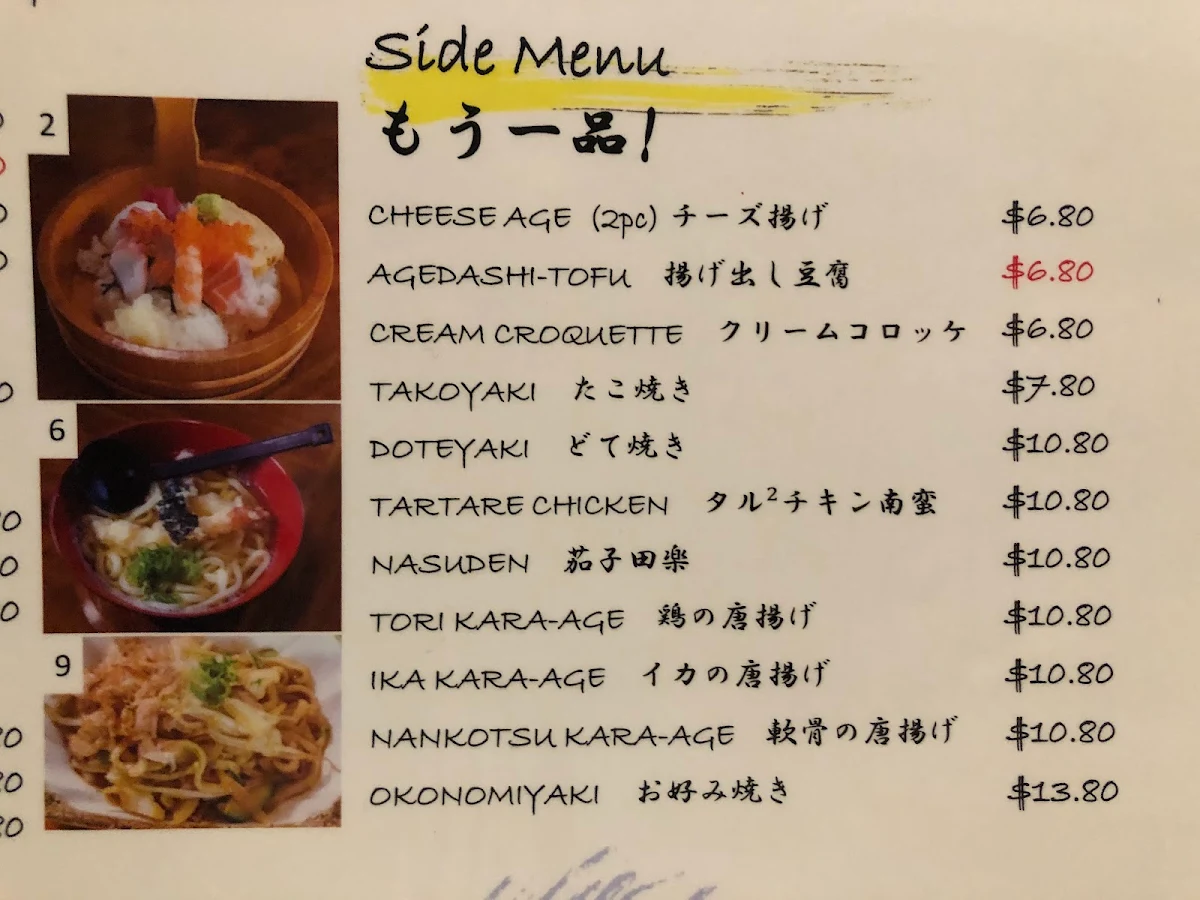 Side Menu
もう一品!
CHEESE AGE (2pc) チーズ揚げ $6.80
AGEDASHI-TOFU 揚げ出し豆腐 $6.80
CREAM CROQUETTE クリームコロッケ $6.80
TAKOYAKI たこ焼き $7.80
DOTEYAKI どて焼き $10.80
TARTARE CHICKEN タル²チキン南蛮 $10.80
NASUDEN 茄子田楽 $10.80
TORI KARA-AGE 鶏の唐揚げ $10.80
IKA KARA-AGE イカの唐揚げ $10.80
NANKOTSU KARA-AGE 軟骨の唐揚げ $10.80
OKONOMIYAKI お好み焼き $13.80
2
6
9